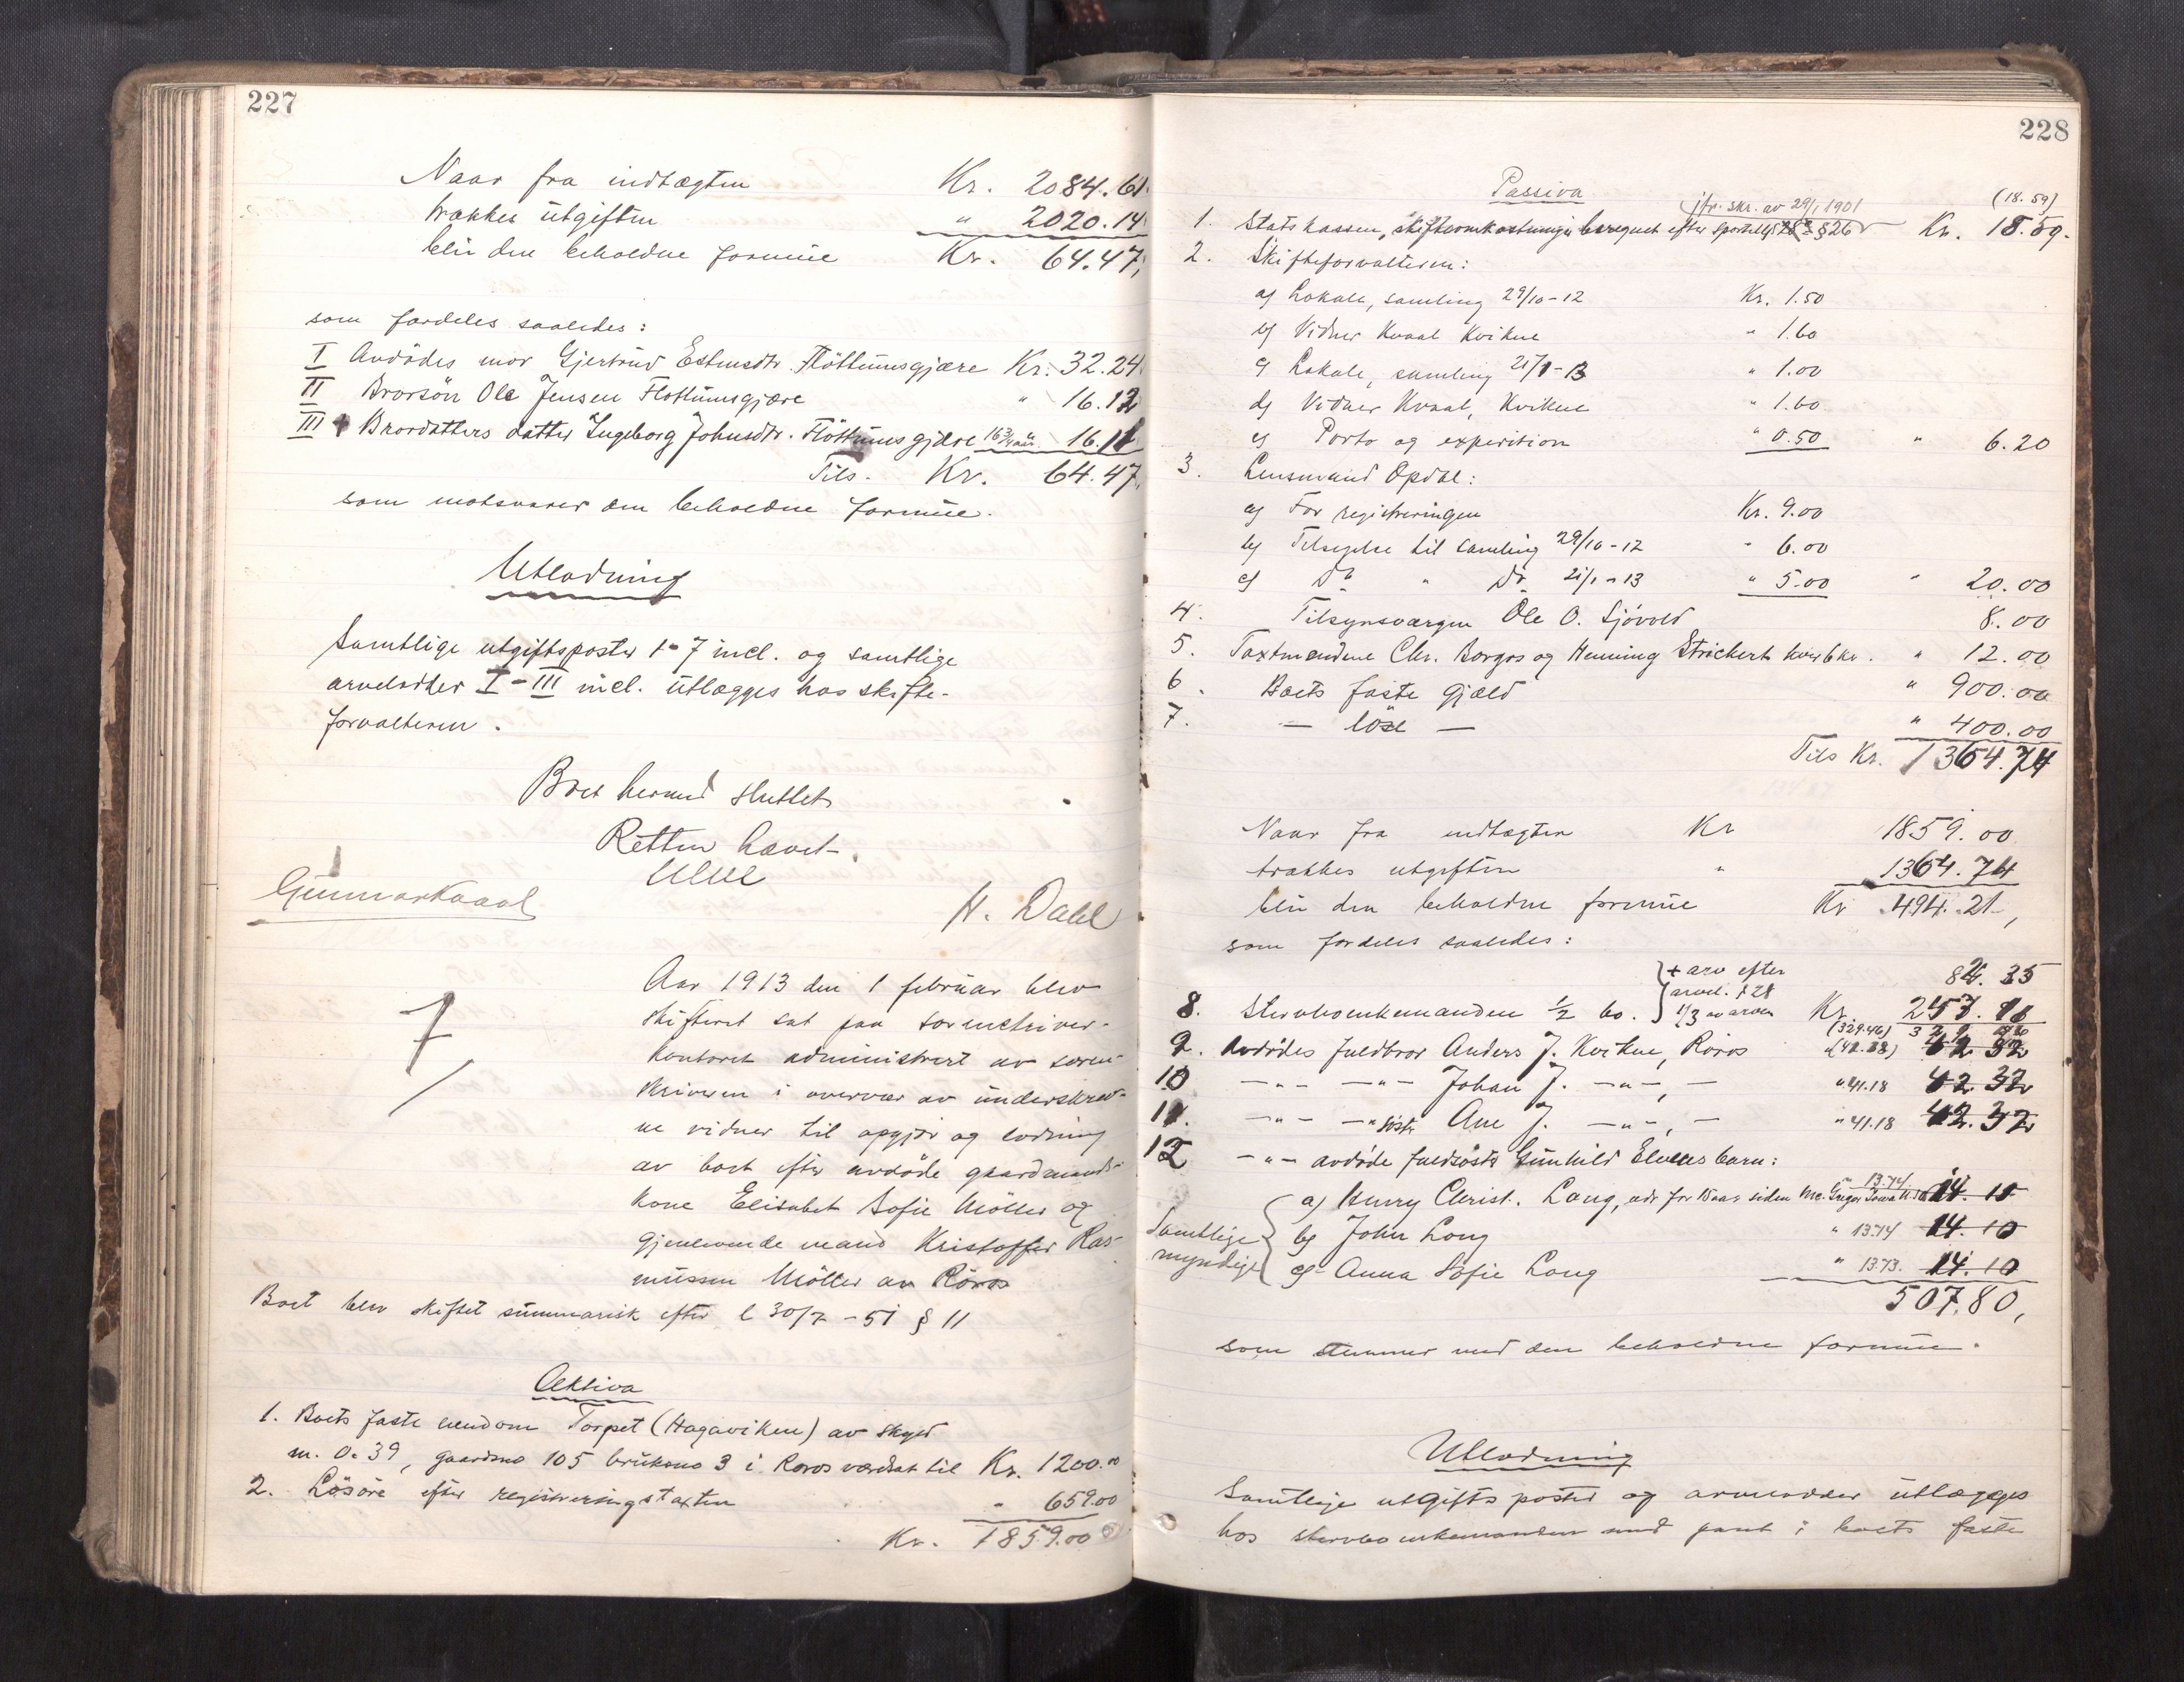 227
Naar fra indtægten Kr. 2084.61.
trækkes utgiften " 2020.14.
blir den beholdne formue Kr. 64.47,
som fordeles saaledes:
I Avdödes mor Gjertrud Estensdtr. Flöttumsgjære Kr. 32.24
II Brorsön Ole Jensen Flottumsgjære " 16.12
III Brordatters datter Ingeborg Johnsdtr. Flöttumsgjære 16 3/4 aar 16.11
Tils. Kr. 64.47,
som motsvarer den beholdne formue.
Utlodning
Samtlige utgiftsposter 1-7 incl. og samtlige
arvelodder I-III incl. utlægges hos skifte-
forvalteren.
Boet hermed sluttet
Retten hævet.
Gunnar Kvaal
H. Dahl
7
Aar 1913 den 1 februar blev
skifteret sat paa sorenskriver-
kontoret administrert av soren-
skriveren i overvær av underskrev-
ne vidner til opgjör og lodning
av boet efter avdöde gaardmands-
kone Elisabet Sofie Möller og
gjenlevende mand Kristoffer Ras-
mussen Möller av Röros
Boet blev skiftet summarisk efter l 30/7 - 51 § 11
Aktiva
1. Boets faste eiendom Torpet (Hagaviken) av skyld
m. 0.39, gaardsno 105 bruksno 3 i Roros værdsat til Kr. 1200.00
2. Lösöre efter registreringstaxten " 659.00
Kr. 1859.00
228
Passiva
jfr. skr. av 29/1 1901 (18.59)
1. Statskassen, skifteomkostninger beregnet efter sportell § 26 Kr. 18.59.
2. Skifteforvalteren:
a) Lokale, samling 29/10-12 Kr. 1.50
b) Vidner Kvaal Kvikne " 1.60
c) Lokale, samling 21/1-13 " 1.00
d) Vidner Kvaal, Kvikne " 1.60
e) Porto og expedition " 0.50 " 6.20
3. Lensmand Opdal:
a) For registreringen Kr. 9.00
b) Tilsigelse til samling 29/10-12 " 6.00
c) Do " Do 21/1-13 " 5.00 " 20.00
4. Tilsynsværgen Ole O. Sjövold 8.00
5. Taxtmændene Chr. Borgos og Henning Strickert hver 6 kr. " 12.00
6. Boets faste gjæld " 900.00
7. — löse — " 400.00
Tils Kr. 1364.74
Naar fra indtægten Kr 1859.00
trækkes utgiften " 1364.74
blir den beholdne formue Kr 494.21,
som fordeles saaledes:
+ arv efter 82.35
arvel. § 28
8. Stervboenkemanden 1/2 bo. 1/3 av arven Kr. 247.
(329.46) 329.46
9. Avdödes fuldbror Anders J. Kvikne, Röros 42.32
10 —"— —"— Johan J. —"—, — " 41.18 42.32
11. —"— —"— söster Ane J. —"—, — " 41.18 42.32
12 —"— avdöde fuldsöster Gunhild Elvens barn:
a) Henry Christ. Long, adr for 15 aar siden Mc. Gregor Iowa U.S.A " 13.74. 14.10
Samtlige b) John Long " 13.74 14.10
myndige c) Anna Sofie Long " 13.73. 14.10
507.80,
som stemmer med den beholdne formue.
Utlodning
Samtlige utgiftsposter og arvelodder utlægges
hos stervboenkemanden mod pant i boets faste